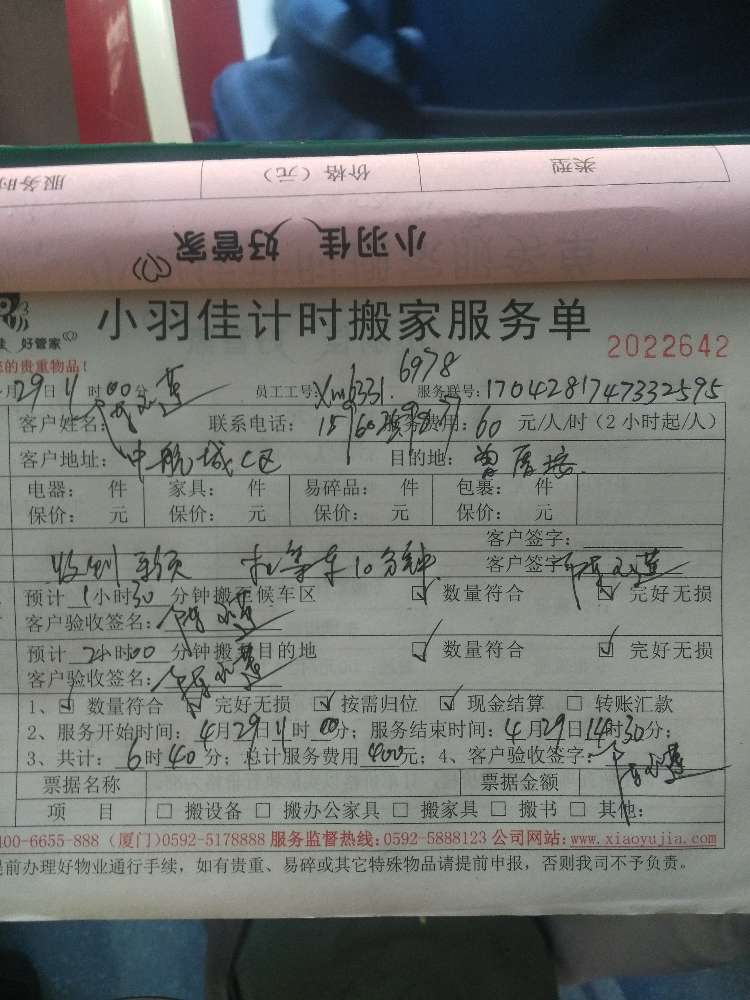 类型 价格（元） 服务时
小羽佳 好管家
小羽佳计时搬家服务单
好管家
2022642
的贵重物品！
月29日11时00分 员工工号：Xm6331. 6978 服务联号：1704281747332595
客户姓名： 联系电话： 服务费用：60 元/人/时（2小时起/人）
客户地址：中航城C区 目的地：曾厝垵
电器： 件 家具： 件 易碎品： 件 包裹： 件
保价： 元 保价： 元 保价： 元 保价： 元
客户签字：
客户签字
预计 1小时30 分钟搬至候车区 ☑ 数量符合 ☑ 完好无损
客户验收签名：
预计 2小时00 分钟搬 目的地 ☑ 数量符合 ☑ 完好无损
客户验收签名：
1、☑ 数量符合 ☑ 完好无损 ☑ 按需归位 ☑ 现金结算 □ 转账汇款
2、服务开始时间：4月29日11时00分；服务结束时间：4月29日14时30分；
3、共计：6时40分；总计服务费用400元；4、客户验收签字：
票据名称 票据金额
项 目 □ 搬设备 □ 搬办公家具 □ 搬家具 □ 搬书 □ 其他：
00-6655-888（厦门）0592-5178888 服务监督热线：0592-5888123 公司网站：www.xiaoyujia.com
提前办理好物业通行手续，如有贵重、易碎或其它特殊物品请提前申报，否则我司不予负责。